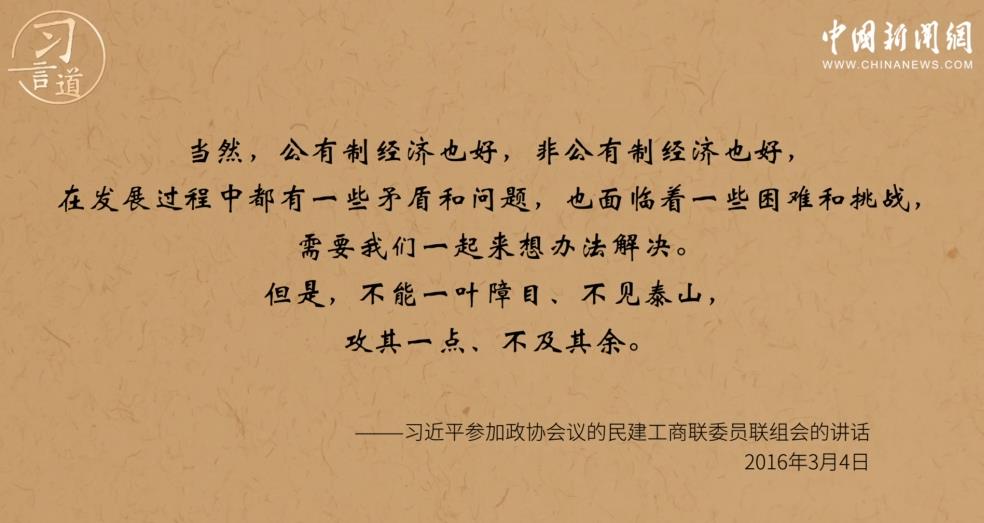 习
言道
中國新聞網
WWW.CHINANEWS.COM
当然，公有制经济也好，非公有制经济也好，
在发展过程中都有一些矛盾和问题，也面临着一些困难和挑战，
需要我们一起来想办法解决。
但是，不能一叶障目、不见泰山，
攻其一点、不及其余。
——习近平参加政协会议的民建工商联委员联组会的讲话
2016年3月4日